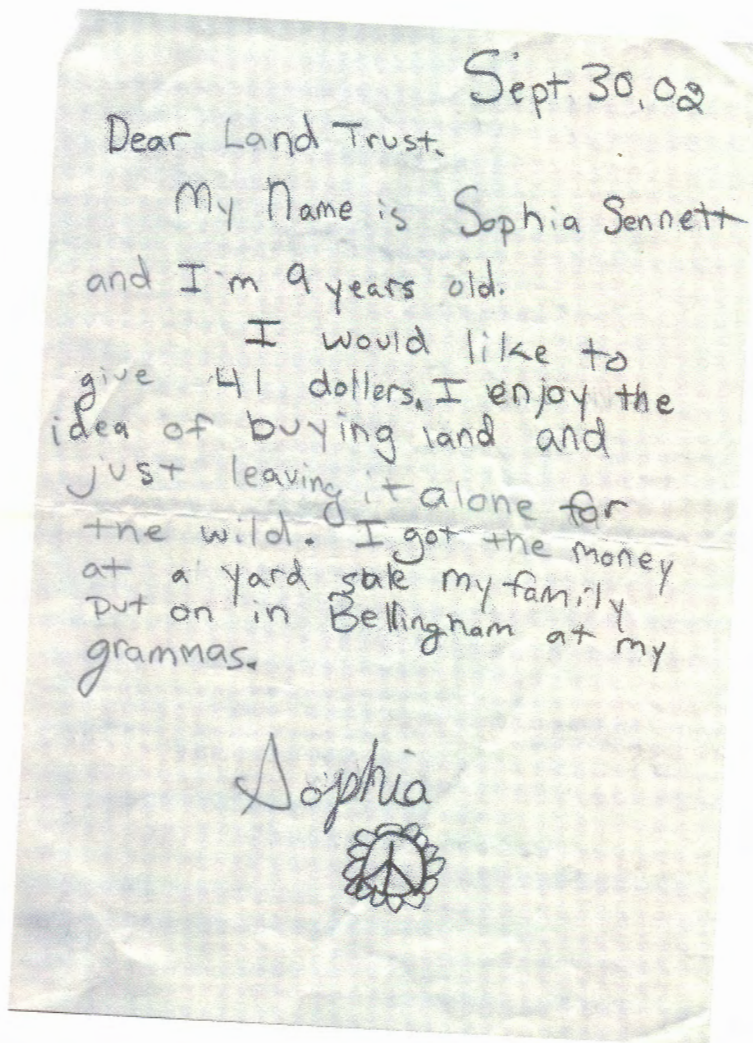 Sept. 30, 02
Dear Land Trust.
My Name is Sophia Sennett
and I'm 9 years old.
I would like to
give 41 dollers. I enjoy the
idea of buying land and
just leaving it alone for
the wild. I got the money
at a yard sale my family
put on in Bellingham at my
grammas.
Sophia